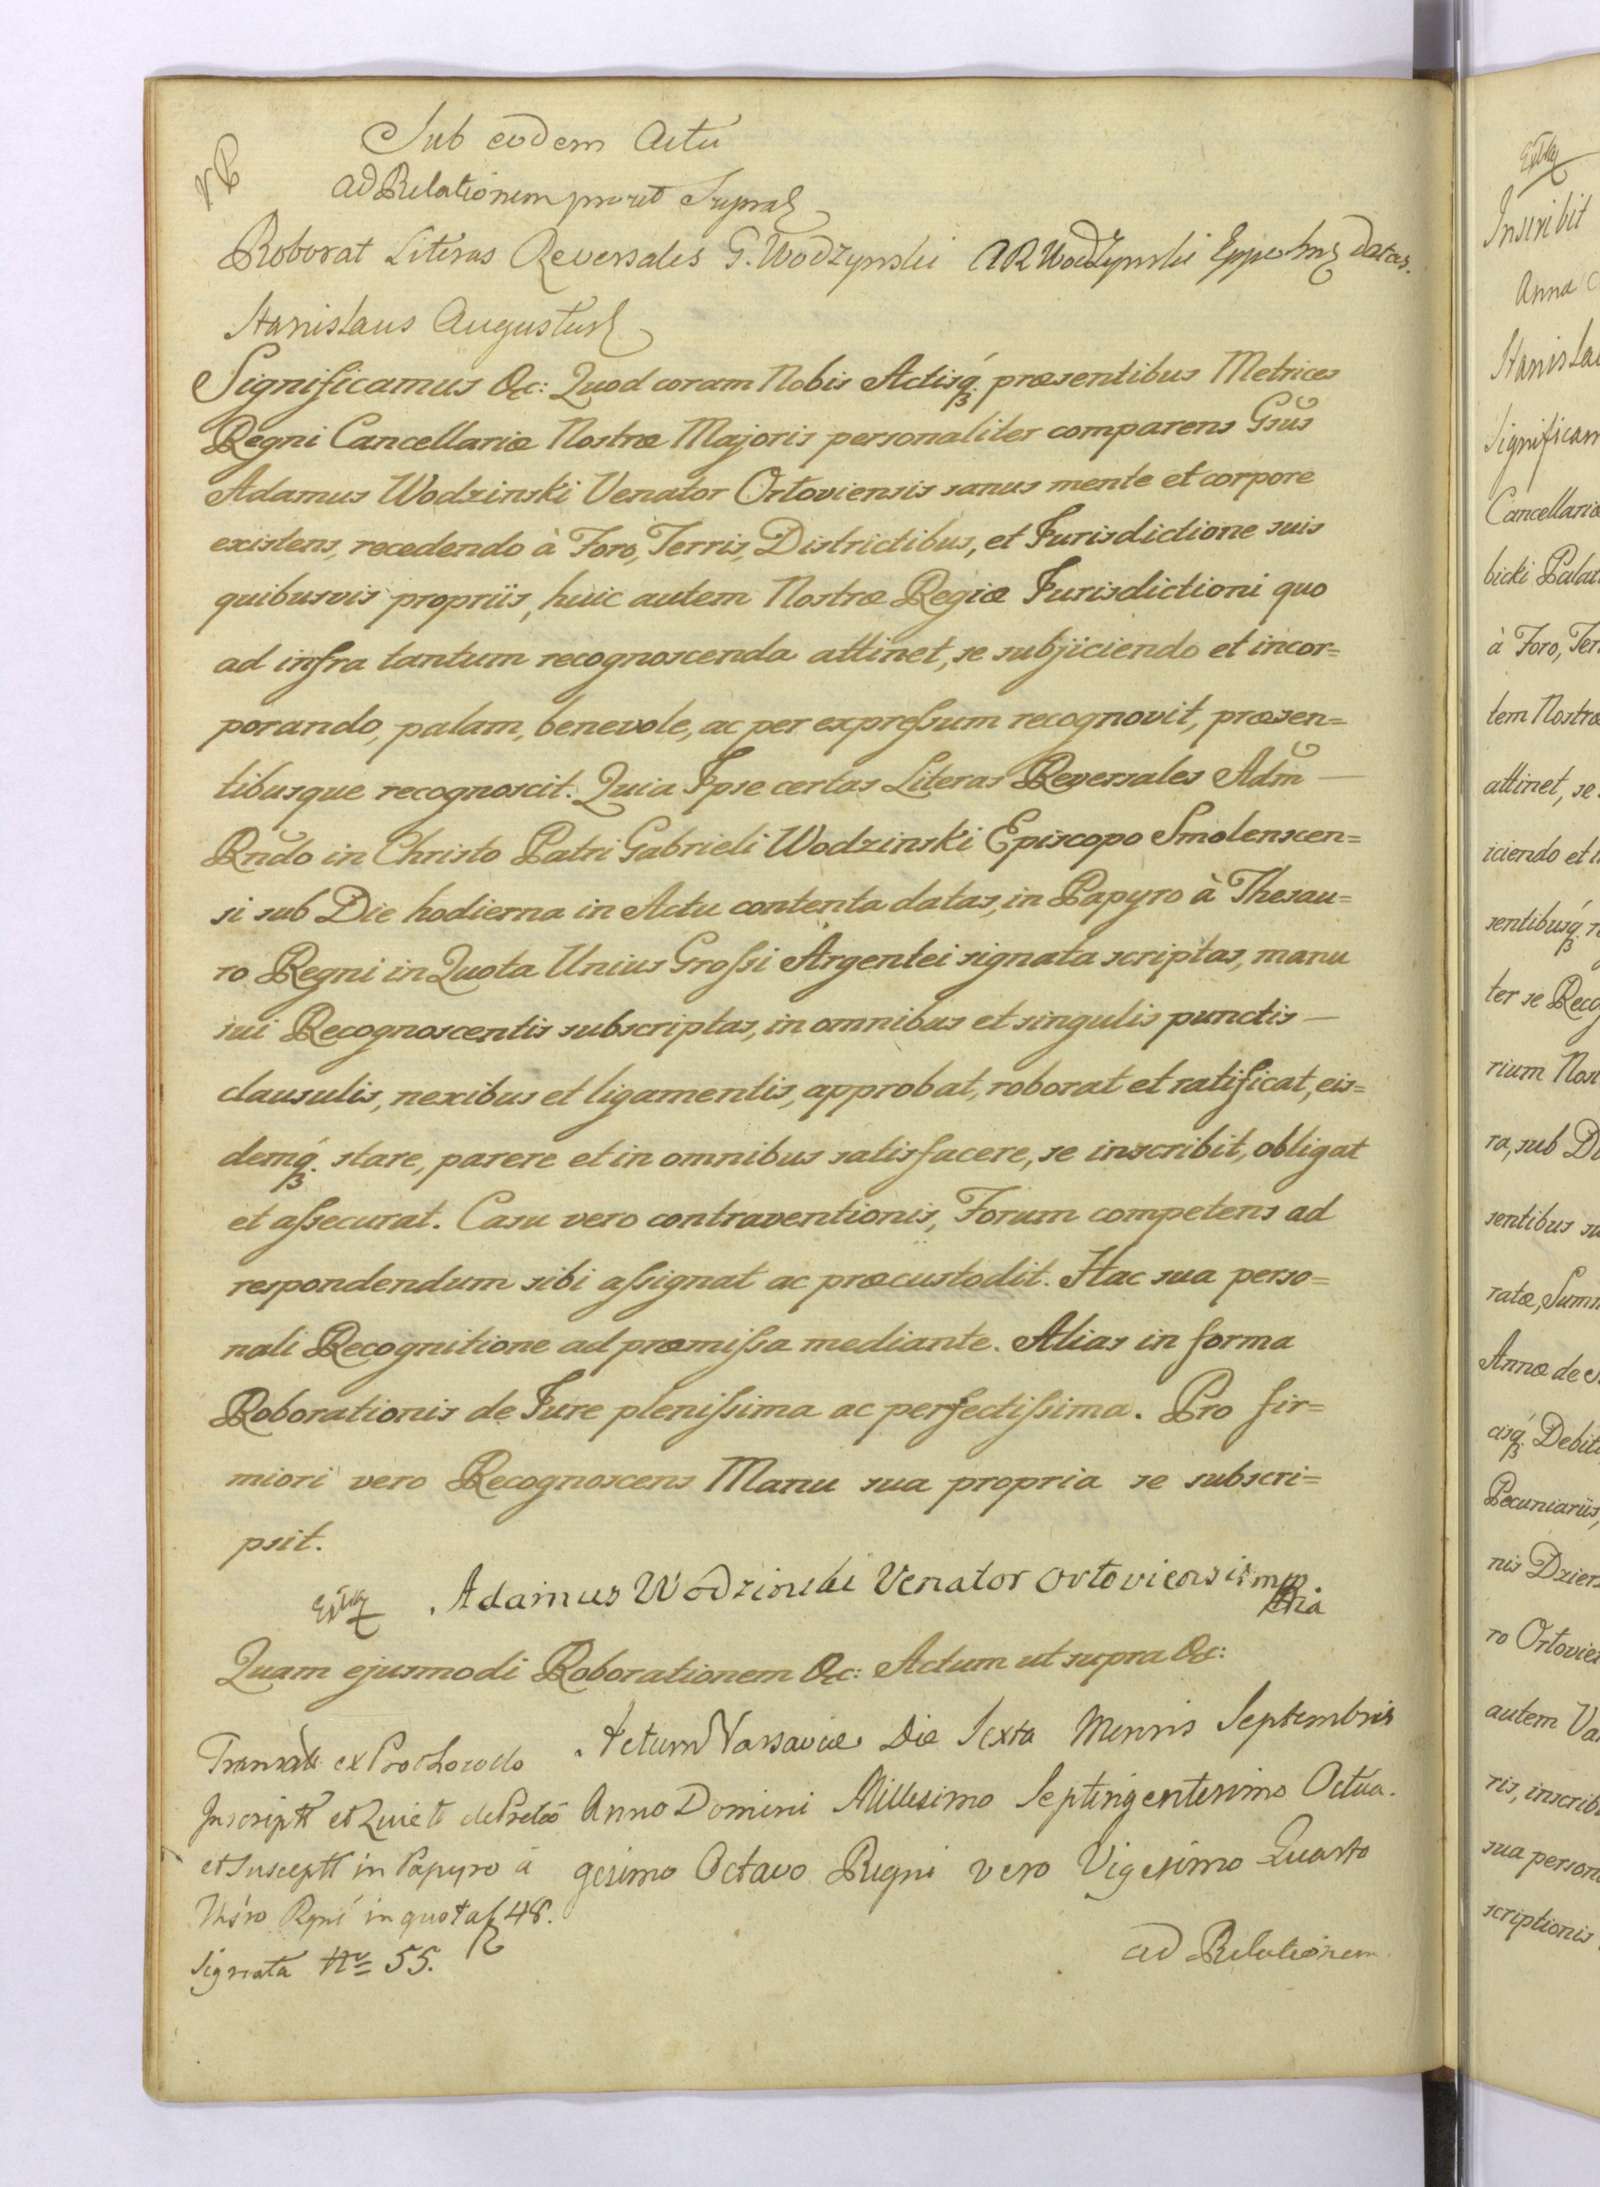 Sub eodem Actu
ad Relationem prout Supra
Roborat Literas Reversales G. Wodzynski AR Wodzynski Eppo datas.
Stanislaus Augustus
Significamus &c: Quod coram Nobis Actisq́, præsentibus Metrices
Regni Cancellariæ Nostræ Majoris personaliter comparens Gsus
Adamus Wodzinski Venator Ortoviensis sanus mente et corpore
existens, recedendo à Foro, Terris, Districtibus, et Jurisdictione suis
quibusvis propriis, huic autem Nostræ Regiæ Jurisdictioni quo
ad infra tantum recognoscenda attinet, se subjiciendo et incor=
porando, palam, benevole, ac per expressum recognovit, præsen=
tibusque recognoscit. Quia Ipse certas Literas Reversales Adm̃ —
Rñdo in Christo Patri Gabrieli Wodzinski Episcopo Smolenscen=
si sub Die hodierna in Actu contenta datas, in Papyro à Thesau=
ro Regni in Quota Unius Grossi Argentei signata scriptas, manu
sui Recognoscentis subscriptas, in omnibus et singulis punctis —
clausulis, nexibus et ligamentis, approbat, roborat et ratificat, eis=
demq́. stare, parere et in omnibus satisfacere, se inscribit, obligat
et assecurat. Casu vero contraventionis, Forum competens ad
respondendum sibi assignat ac præcustodit. Hac sua perso=
nali Recognitione ad præmissa mediante. Alias in forma
Roborationis de Jure plenissima ac perfectissima. Pro fir=
miori vero Recognoscens Manu sua propria se subscri=
psit.
Adamus Wodzinski Venator Ortoviensis mp
Quam ejusmodi Roborationem &c: Actum ut supra &c:
Actum Varsaviæ Die Sexta Mensis Septembris
Anno Domini Millesimo Septingentesimo Octua.
gesimo Octavo Regni vero Vigesimo Quarto
ad Relationem
ex Prothocollo
Inscript et Quiet
et Suscept in Papyro à
Thsro Rgni in quota 48.
signata No 55.
Inscribit
Anna
Stanislau
Significam
Cancellariæ
bicki Palat
à Foro, Ter
tem Nostræ
attinet, se
iciendo et i
sentibusq́ r
ter se Recog
rium Nos
ra, sub Di
sentibus su
ratæ, Sum
Annæ de S
cisq́. Debit
Pecuniariis,
nis Dzier
ro Ortovie
autem Va
ris, inscrib
sua person
scriptionis